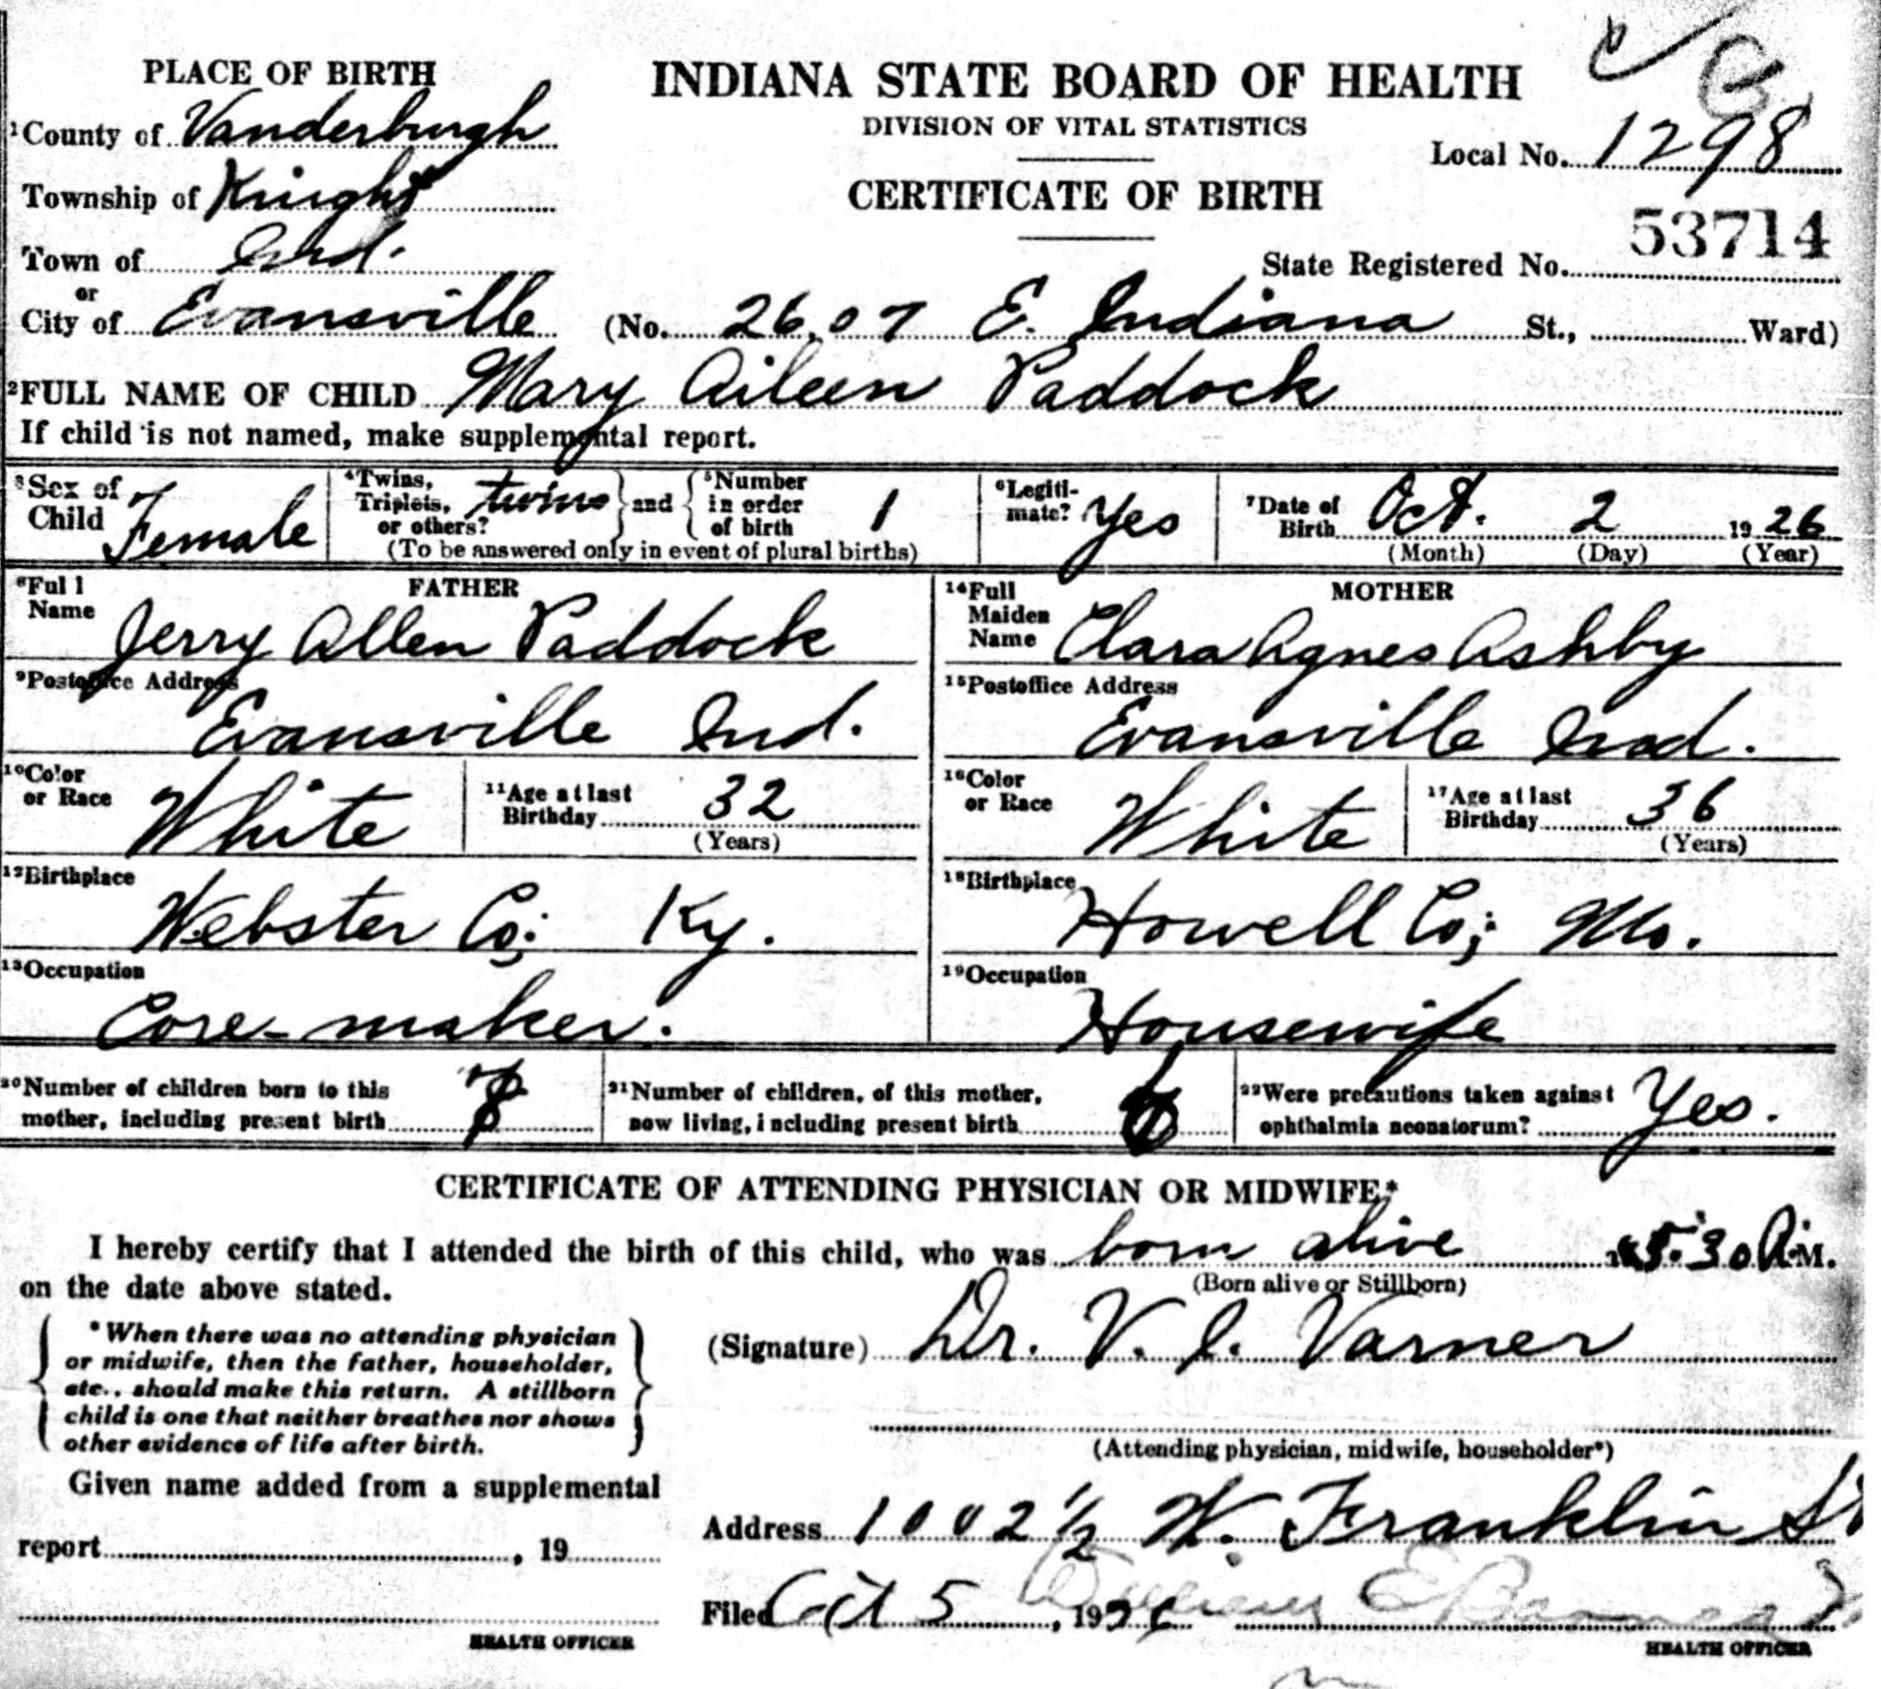 PLACE OF BIRTH
INDIANA STATE BOARD OF HEALTH
DIVISION OF VITAL STATISTICS
1County of Vanderburgh
Local No. 1298
Township of Knight
CERTIFICATE OF BIRTH
53714
Town of Ind.
State Registered No.
or
City of Evansville (No. 2607 E. Indiana St., Ward)
2FULL NAME OF CHILD Mary Aileen Paddock
If child is not named, make supplemental report.
3Sex of Child Female
4Twins, Triplets, or others? twins and 5Number in order of birth 1
(To be answered only in event of plural births)
6Legitimate? Yes
7Date of Birth Oct. 2 1926
(Month) (Day) (Year)
FATHER
8Full Name Jerry Allen Paddock
9Postoffice Address
Evansville Ind.
10Color or Race White
11Age at last Birthday 32
(Years)
12Birthplace
Webster Co; Ky.
13Occupation
Core-maker.
MOTHER
14Full Maiden Name Clara Agnes Ashby
15Postoffice Address
Evansville Ind.
16Color or Race White
17Age at last Birthday 36
(Years)
18Birthplace
Howell Co; Mo.
19Occupation
Housewife
20Number of children born to this
mother, including present birth
21Number of children, of this mother,
now living, including present birth
22Were precautions taken against
ophthalmia neonatorum? Yes.
CERTIFICATE OF ATTENDING PHYSICIAN OR MIDWIFE*
I hereby certify that I attended the birth of this child, who was born alive 5:30 A.M.
(Born alive or Stillborn)
on the date above stated.
*When there was no attending physician
or midwife, then the father, householder,
etc., should make this return. A stillborn
child is one that neither breathes nor shows
other evidence of life after birth.
(Signature) Dr. V. J. Varner
(Attending physician, midwife, householder*)
Given name added from a supplemental
report , 19
HEALTH OFFICER
Address 1002 1/2 W. Franklin St
Filed Oct 5, 1926
HEALTH OFFICER